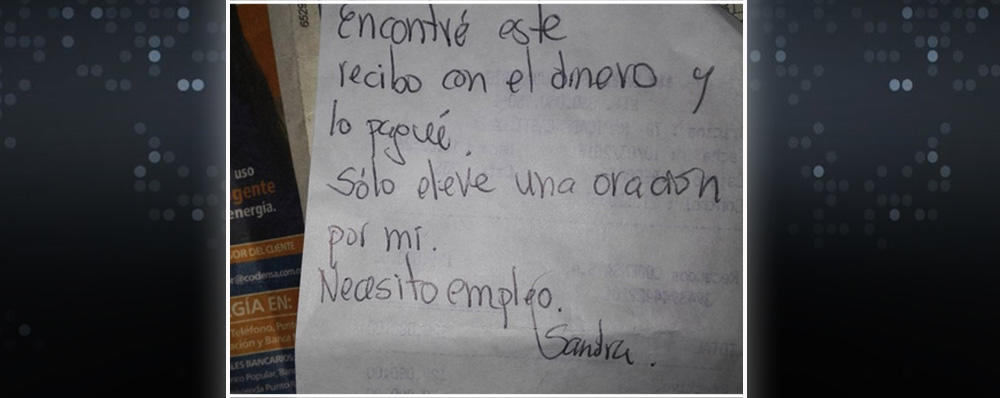 6529
Encontré este
recibo con el dinero y
lo pagué.
Sólo eleve una oración
por mí.
Necesito empleo.
Sandra.
uso
gente
energía.
OR DEL CLIENTE
@codensa.com.co
GÍA EN:
Teléfono, Punto
ación y Banca
LES BANCARIOS:
Popular, Ban
Punto